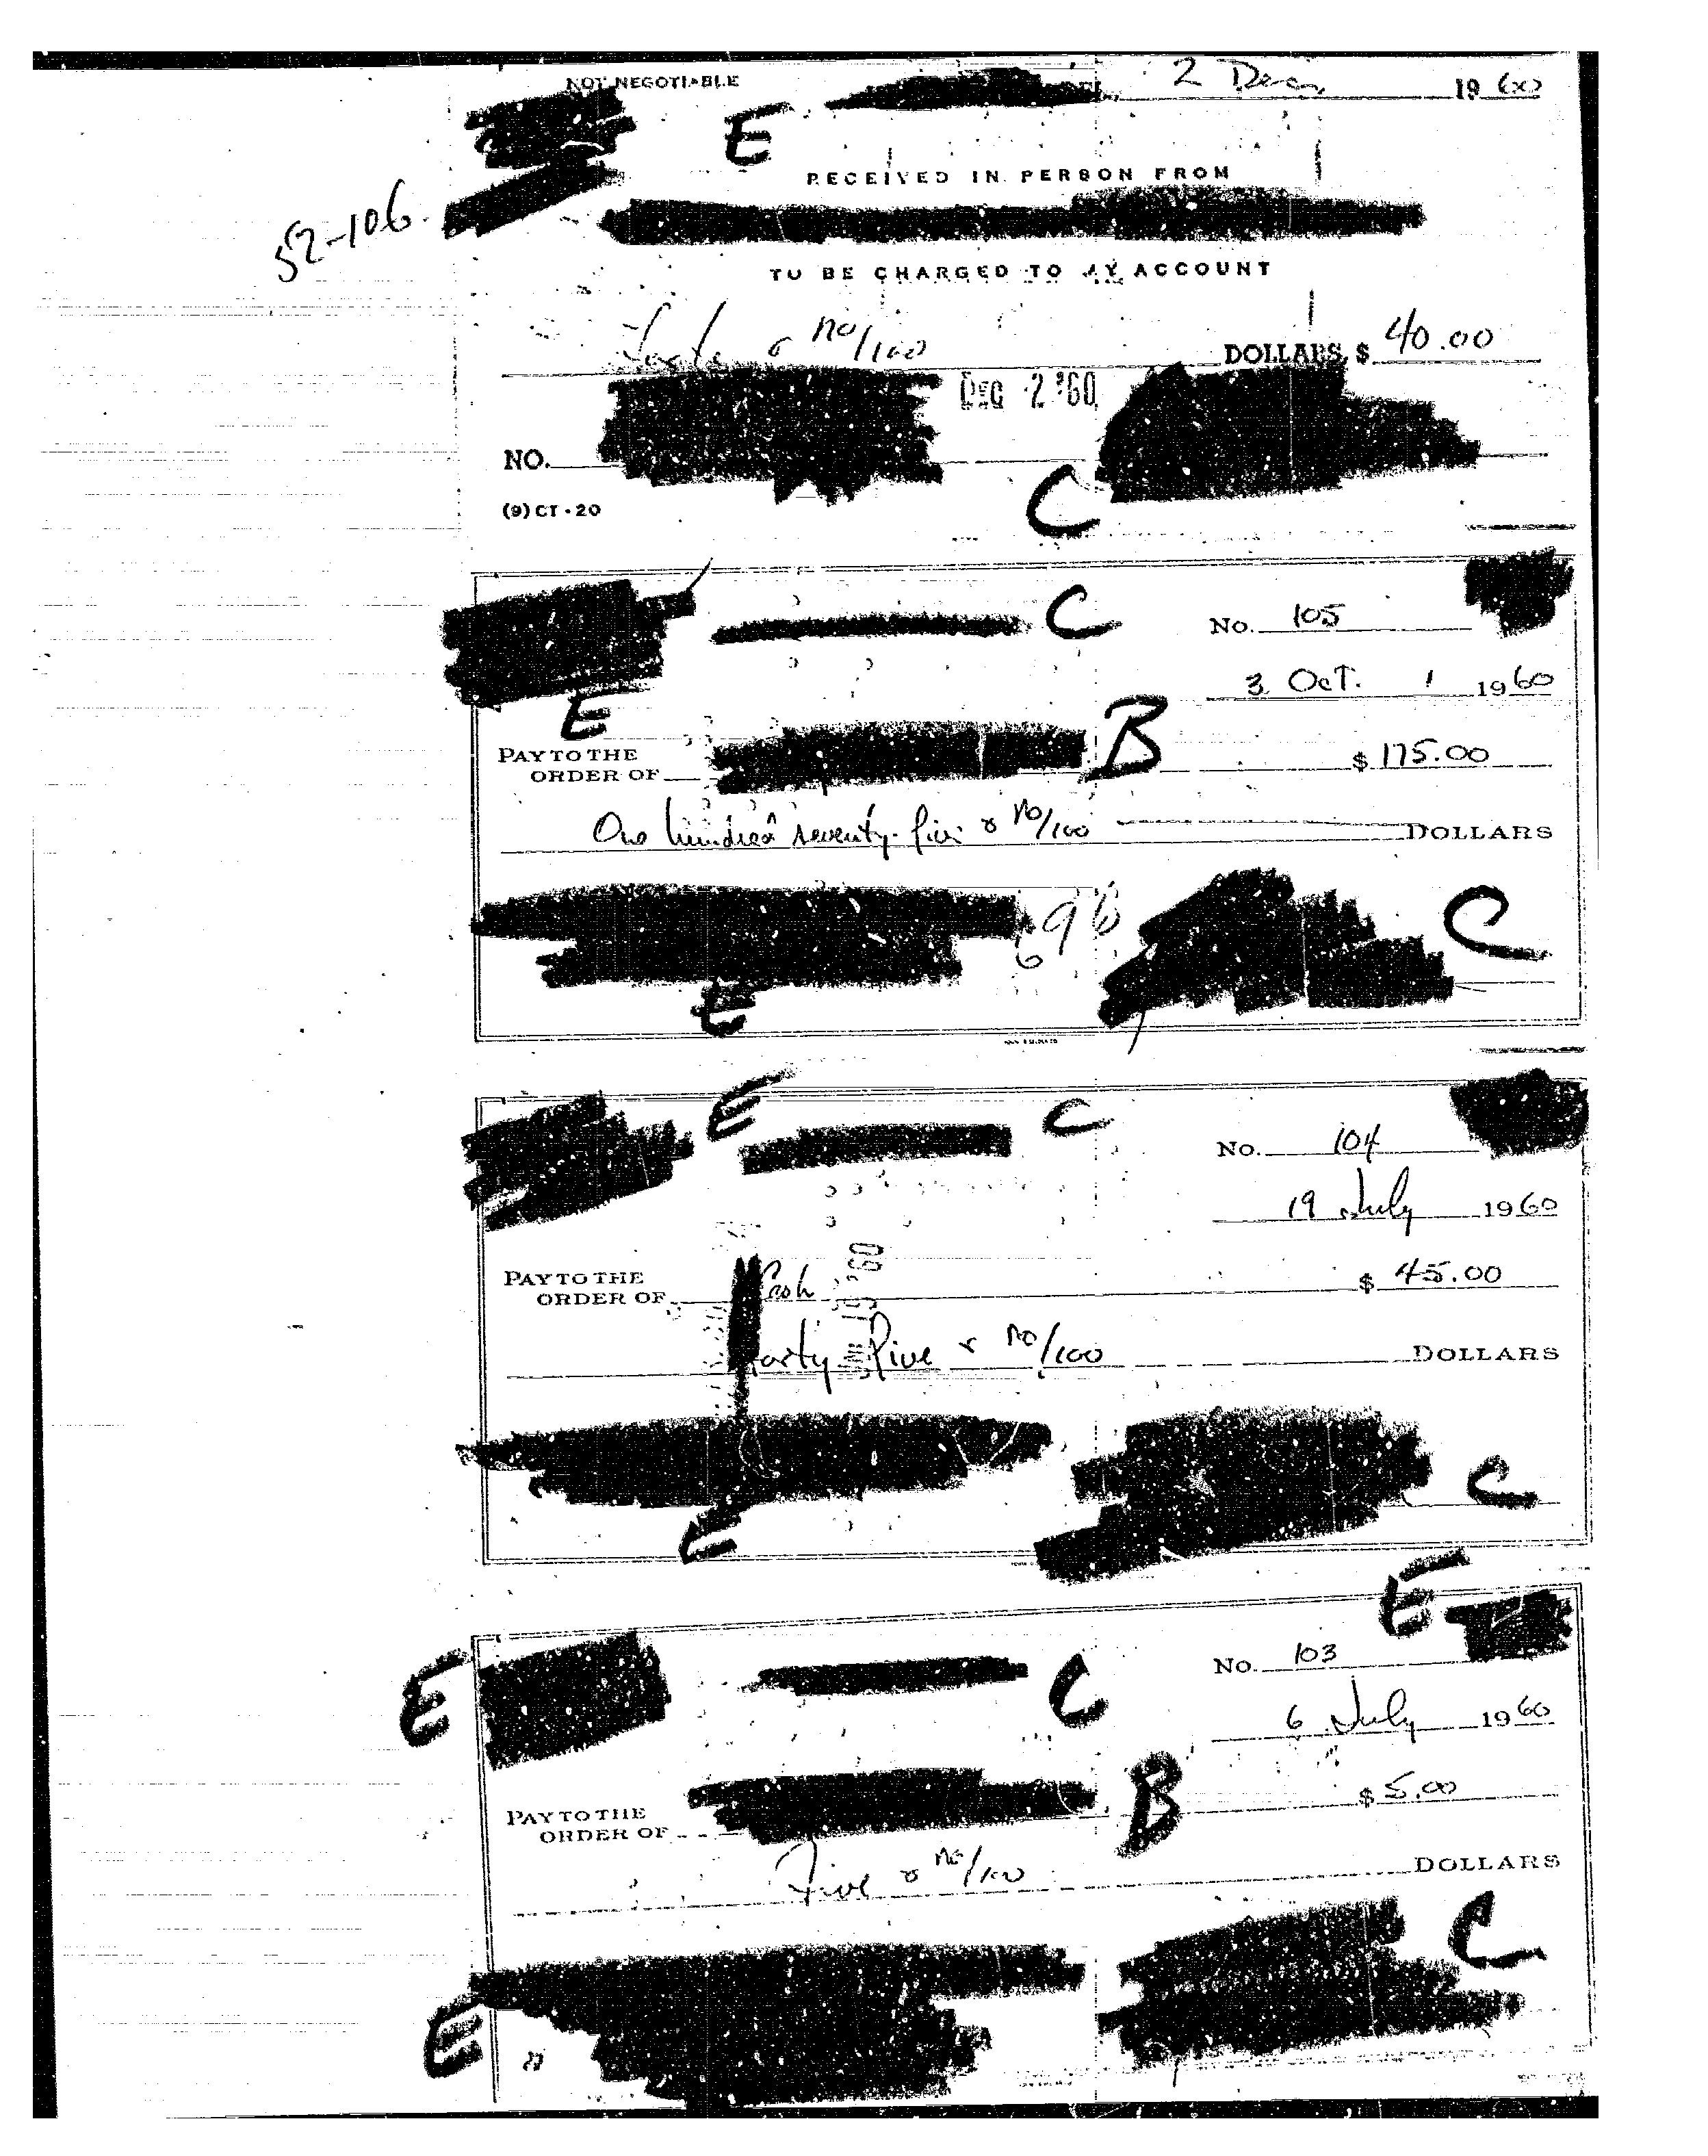 NOT NEGOTIABLE
2 Dec, 19 60
E
RECEIVED IN PERSON FROM
52-106
TO BE CHARGED TO MY ACCOUNT
& no/100 DOLLARS, $ 40.00
DEC 2 '60
NO.
C
(9) CT - 20
C
No. 105
3 Oct. 1960
E
PAY TO THE
ORDER OF
B
$ 175.00
One hundred seventy-five & no/100 DOLLARS
C
E
E
C
No. 104
19 July 1960
PAY TO THE
ORDER OF Cash $ 45.00
Forty Five & no/100 DOLLARS
C
E
E
E
C
No. 103
6 July 1960
PAY TO THE
ORDER OF
B
$ 5.00
Five & no/100 DOLLARS
C
E